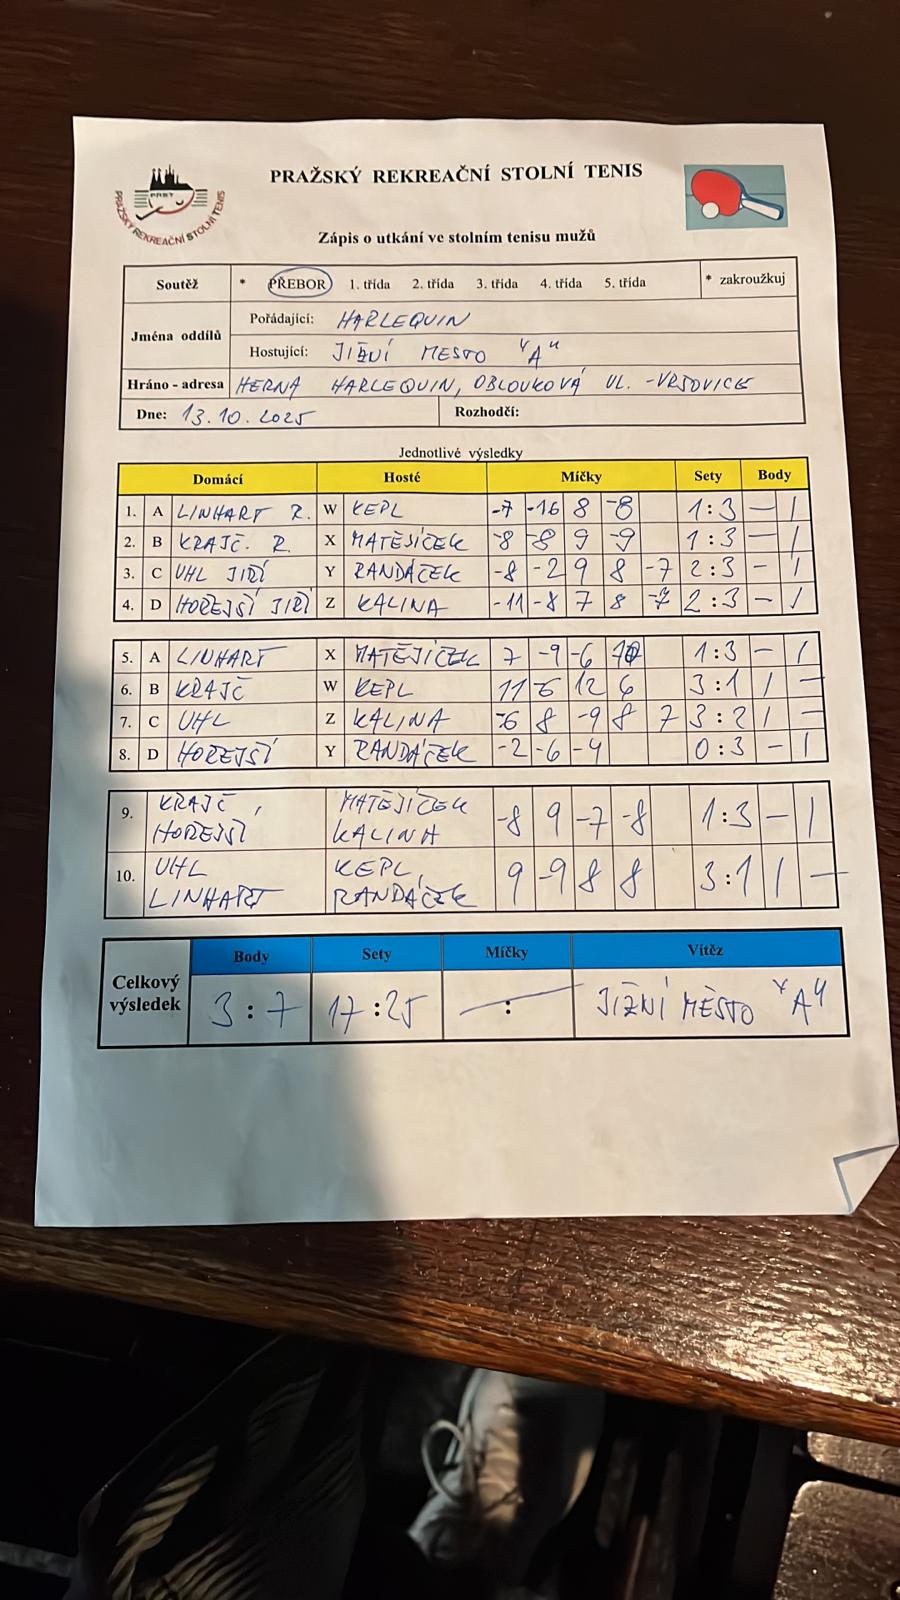 PRAŽSKÝ REKREAČNÍ STOLNÍ TENIS
PRAŽSKÝ REKREAČNÍ STOLNÍ TENIS
Zápis o utkání ve stolním tenisu mužů
Soutěž * PŘEBOR 1. třída 2. třída 3. třída 4. třída 5. třída * zakroužkuj
Jména oddílů
Pořádající: HARLEQUIN
Hostující: JIŽNÍ MESTO "A"
Hráno - adresa HERNA HARLEQUIN, OBLOUKOVÁ UL. - VRŠOVICE
Dne: 13.10.2025 Rozhodčí:
Jednotlivé výsledky
Domácí Hosté Míčky Sety Body
1. A LINHART R. W KEPL -7 -16 8 -8 1:3 – 1
2. B KRAJČ. R. X MATĚJÍČEK -8 -8 9 -9 1:3 – 1
3. C UHL JIŘÍ Y RANDÁČEK -8 -2 9 8 -7 2:3 – 1
4. D HOŘEJŠÍ JIŘÍ Z KALINA -11 -8 7 8 -7 2:3 – 1
5. A LINHART X MATĚJÍČEK 7 -9 -6 1:3 – 1
6. B KRAJČ W KEPL 11 -6 12 6 3:1 1 –
7. C UHL Z KALINA -6 8 -9 8 7 3:2 1 –
8. D HOŘEJŠÍ Y RANDÁČEK -2 -6 -4 0:3 – 1
9. KRAJČ, MATĚJÍČEK -8 9 -7 -8 1:3 – 1
HOŘEJŠÍ KALINA
10. UHL KEPL, 9 -9 8 8 3:1 1 –
LINHART RANDÁČEK
Celkový výsledek
Body Sety Míčky Vítěz
3:7 17:25 : JIŽNÍ MĚSTO "A"